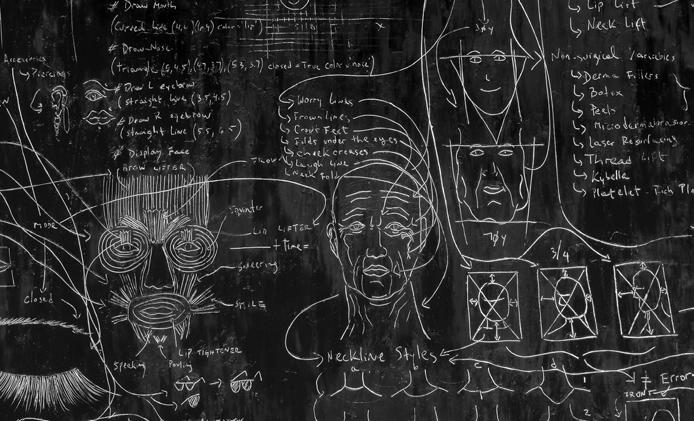 # Draw Mouth
# Draw Nose
(triangle
closed = True color = nose)
# Draw L eyebrow
(straight line (3.5, 4.5)
# Draw R eyebrow
(straight line (5.5,
# Display Face
BROW LIFTER
Accessories
Piercings
Mode
Closed
Squinter
LID LIFTER
+ time =
Sneering
Speaking
Pouting
LIP TIGHTENER
Worry Lines
Frown lines,
Crow's Feet
Folds under the eyes
cheek creases
Laugh line
Neck Fold
30y
70y
Lip Lift
Neck Lift
Non-surgical Variables
Derma Fillers
Botox
Peels
Microdermabrasion
Laser Resurfacing
Thread Lift
Kybella
Platelet - Rich Pla
3/4
Neckline Styles
a b c d
1
2
≠ Error
FRONT